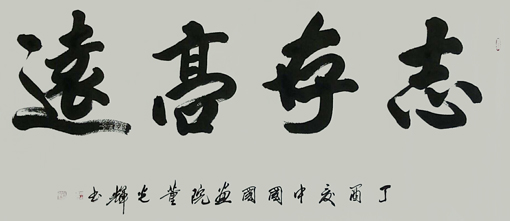 志存高遠
丁酉夏中國國画院董光輝书